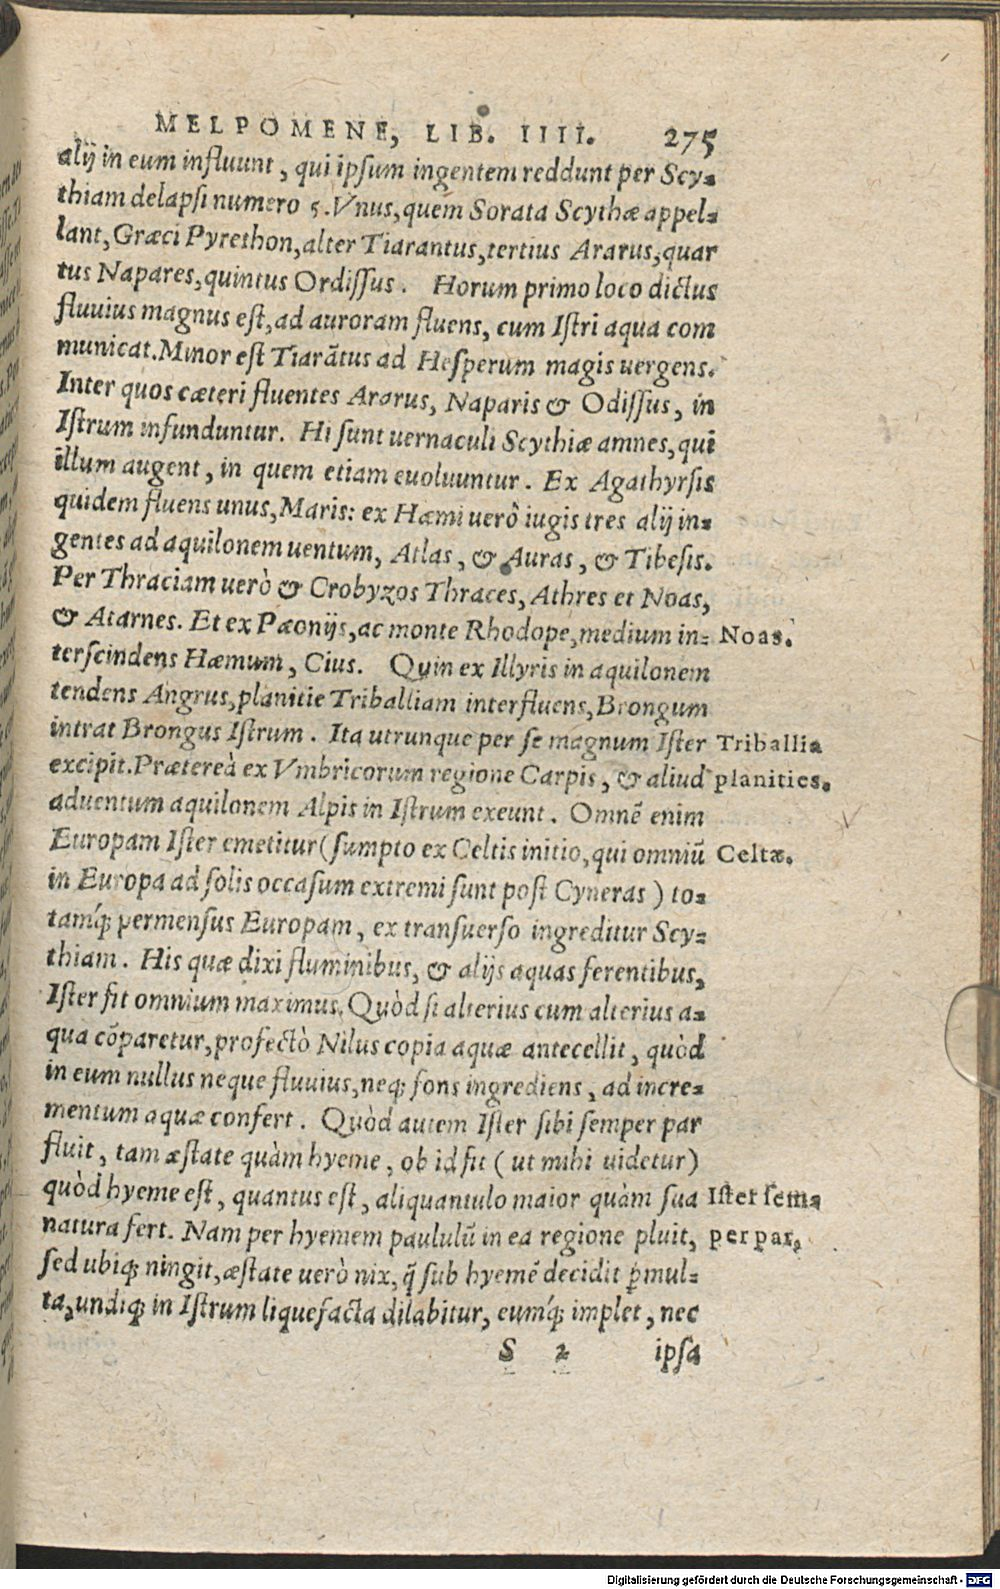 MELPOMENE, LIB. IIII. 275
alij in eum influunt, qui ipsum ingentem reddunt per Scy-
thiam delapsi numero 5. Vnus, quem Sorata Scythæ appel-
lant, Græci Pyrethon, alter Tiarantus, tertius Ararus, quar
tus Napares, quintus Ordissus. Horum primo loco dictus
fluuius magnus est, ad auroram fluens, cum Istri aqua com
municat. Minor est Tiarãtus ad Hesperum magis uergens.
Inter quos cæteri fluentes Ararus, Naparis & Odissus, in
Istrum infunduntur. Hi sunt uernaculi Scythiæ amnes, qui
illum augent, in quem etiam euoluuntur. Ex Agathyrsis
quidem fluens unus, Maris: ex Hæmi uerò iugis tres alij in-
gentes ad aquilonem uentum, Atlas, & Auras, & Tibesis.
Per Thraciam uerò & Crobyzos Thraces, Athres et Noas,
& Atarnes. Et ex Pæonijs, ac monte Rhodope, medium in- Noas.
terscindens Hæmum, Cius. Quin ex Illyris in aquilonem
tendens Angrus, planitie Triballiam interfluens, Brongum
intrat Brongus Istrum. Ita utrunque per se magnum Ister Triballia
excipit. Prætereà ex Vmbricorum regione Carpis, & aliud planities.
aduentum aquilonem Alpis in Istrum exeunt. Omnẽ enim
Europam Ister emetitur (sumpto ex Celtis initio, qui omniũ Celtæ.
in Europa ad solis occasum extremi sunt post Cyneras) to-
tamq́; permensus Europam, ex transuerso ingreditur Scy-
thiam. His quæ dixi fluminibus, & alijs aquas ferentibus,
Ister fit omnium maximus. Quòd si alterius cum alterius a-
qua cõparetur, profectò Nilus copia aquæ antecellit, quòd
in eum nullus neque fluuius, neq; fons ingrediens, ad incre-
mentum aquæ confert. Quòd autem Ister sibi semper par
fluit, tam æstate quàm hyeme, ob id fit (ut mihi uidetur)
quòd hyeme est, quantus est, aliquantulo maior quàm sua Ister sem-
natura fert. Nam per hyemem paululũ in ea regione pluit, per par.
sed ubiq; ningit, æstate uerò nix, q̃ sub hyemẽ decidit ꝑmul-
ta, undiq; in Istrum liquefacta dilabitur, eumq́; implet, nec
S 2 ipsa
Digitalisierung gefördert durch die Deutsche Forschungsgemeinschaft - DFG